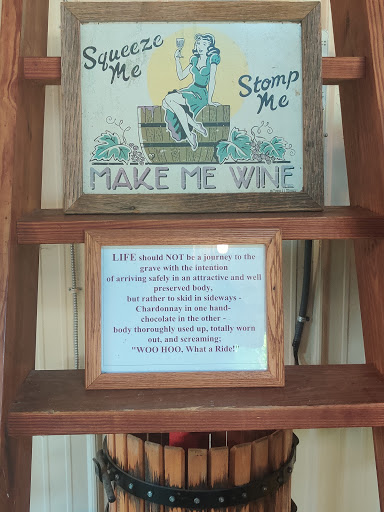 Squeeze
Me
Stomp
Me
MAKE ME WINE
LIFE should NOT be a journey to the
grave with the intention
of arriving safely in an attractive and well
preserved body,
but rather to skid in sideways -
Chardonnay in one hand-
chocolate in the other -
body thoroughly used up, totally worn
out, and screaming;
"WOO HOO, What a Ride!"